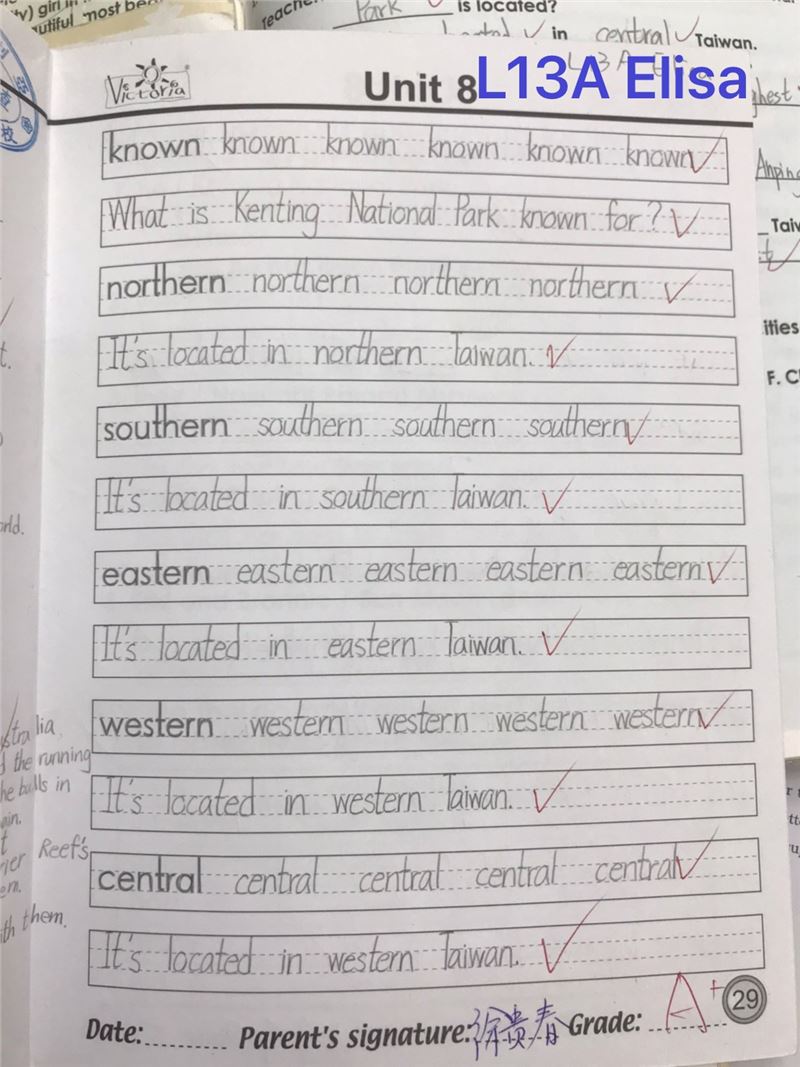 Teacher
Park is located?
located in central Taiwan.
L13A Elisa
ty) girl in
utiful most
Victoria
Unit 8
L13A Elisa
ghest
known known known known known known
What is Kenting National Park known for?
Anping
northern northern northern northern
It's located in northern Taiwan.
ities
F.
southern southern southern southern
It's located in southern Taiwan.
orld.
eastern eastern eastern eastern eastern
It's located in eastern Taiwan.
western western western western western
stralia
d the running
he bulls in
ain.
It's located in western Taiwan.
rier Reef's
central central central central central
ith them.
It's located in western Taiwan.
Date: Parent's signature: 徐贵春 Grade: A+
29